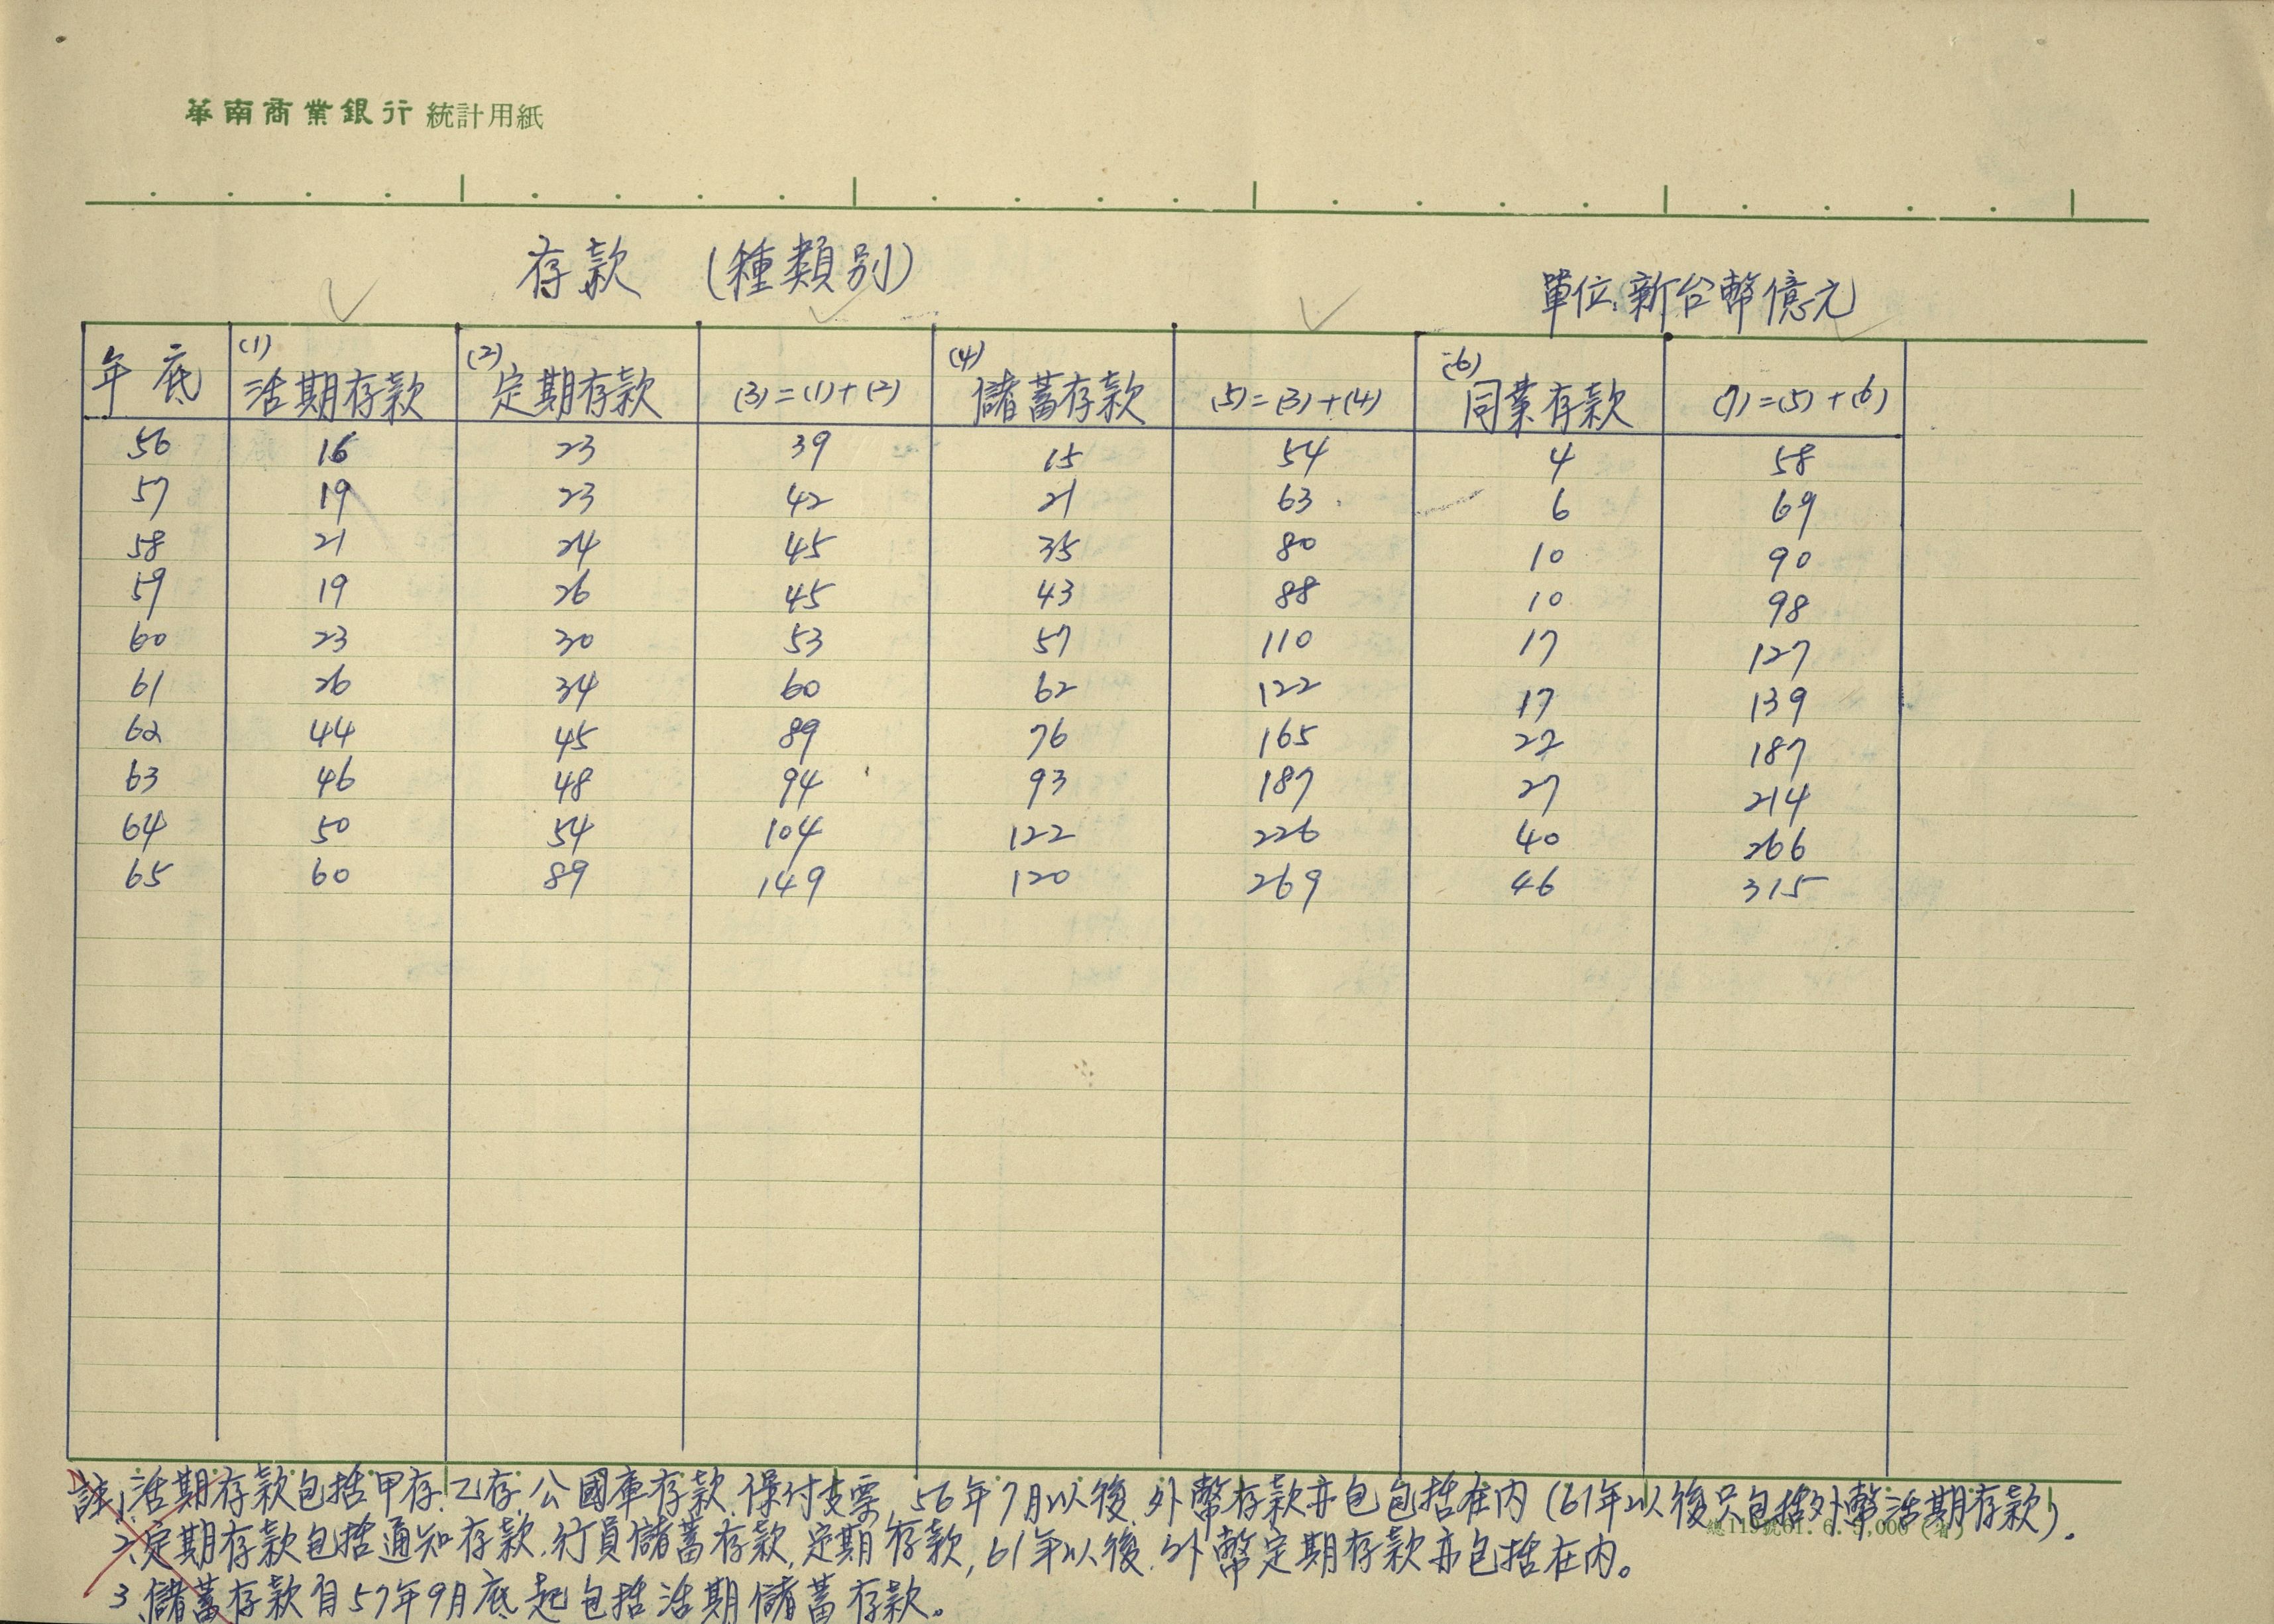 華南商業銀行 統計用紙
存款 (種類別)
單位:新台幣億元
年底 (1)活期存款 (2)定期存款 (3)=(1)+(2) (4)儲蓄存款 (5)=(3)+(4) (6)同業存款 (7)=(5)+(6)
56 16 23 39 15 54 4 58
57 19 23 42 21 63 6 69
58 21 24 45 35 80 10 90
59 19 26 45 43 88 10 98
60 23 30 53 57 110 17 127
61 26 34 60 62 122 17 139
62 44 45 89 76 165 22 187
63 46 48 94 93 187 27 214
64 50 54 104 122 226 40 266
65 60 89 149 120 269 46 315
註1.活期存款包括甲存.乙存.公國庫存款.保付支票, 56年7月以後.外幣存款亦包包括在內(61年以後只包括外幣活期存款).
2.定期存款包括通知存款.行員儲蓄存款,定期存款,61年以後.外幣定期存款亦包括在內。
3.儲蓄存款自57年9月底起包括活期儲蓄存款。